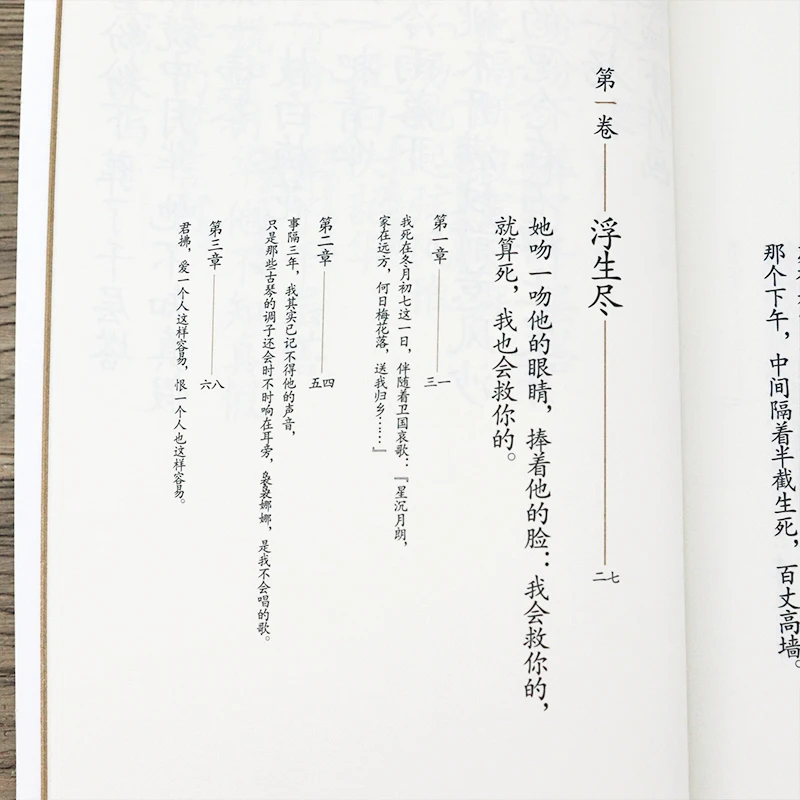 那个下午，中间隔着半截生死，百丈高墙。
第一卷——浮生尽——二七
她吻一吻他的眼睛，捧着他的脸：我会救你的，
就算死，我也会救你的。
第一章——三一
我死在冬月初七这一日，伴随着卫国哀歌：『星沉月朗，
家在远方，何日梅花落，送我归乡……』
第二章——五四
事隔三年，我其实已记不得他的声音，
只是那些古琴的调子还会时不时响在耳旁，袅袅娜娜，是我不会唱的歌。
第三章——六八
君拂，爱一个人这样容易，恨一个人也这样容易。